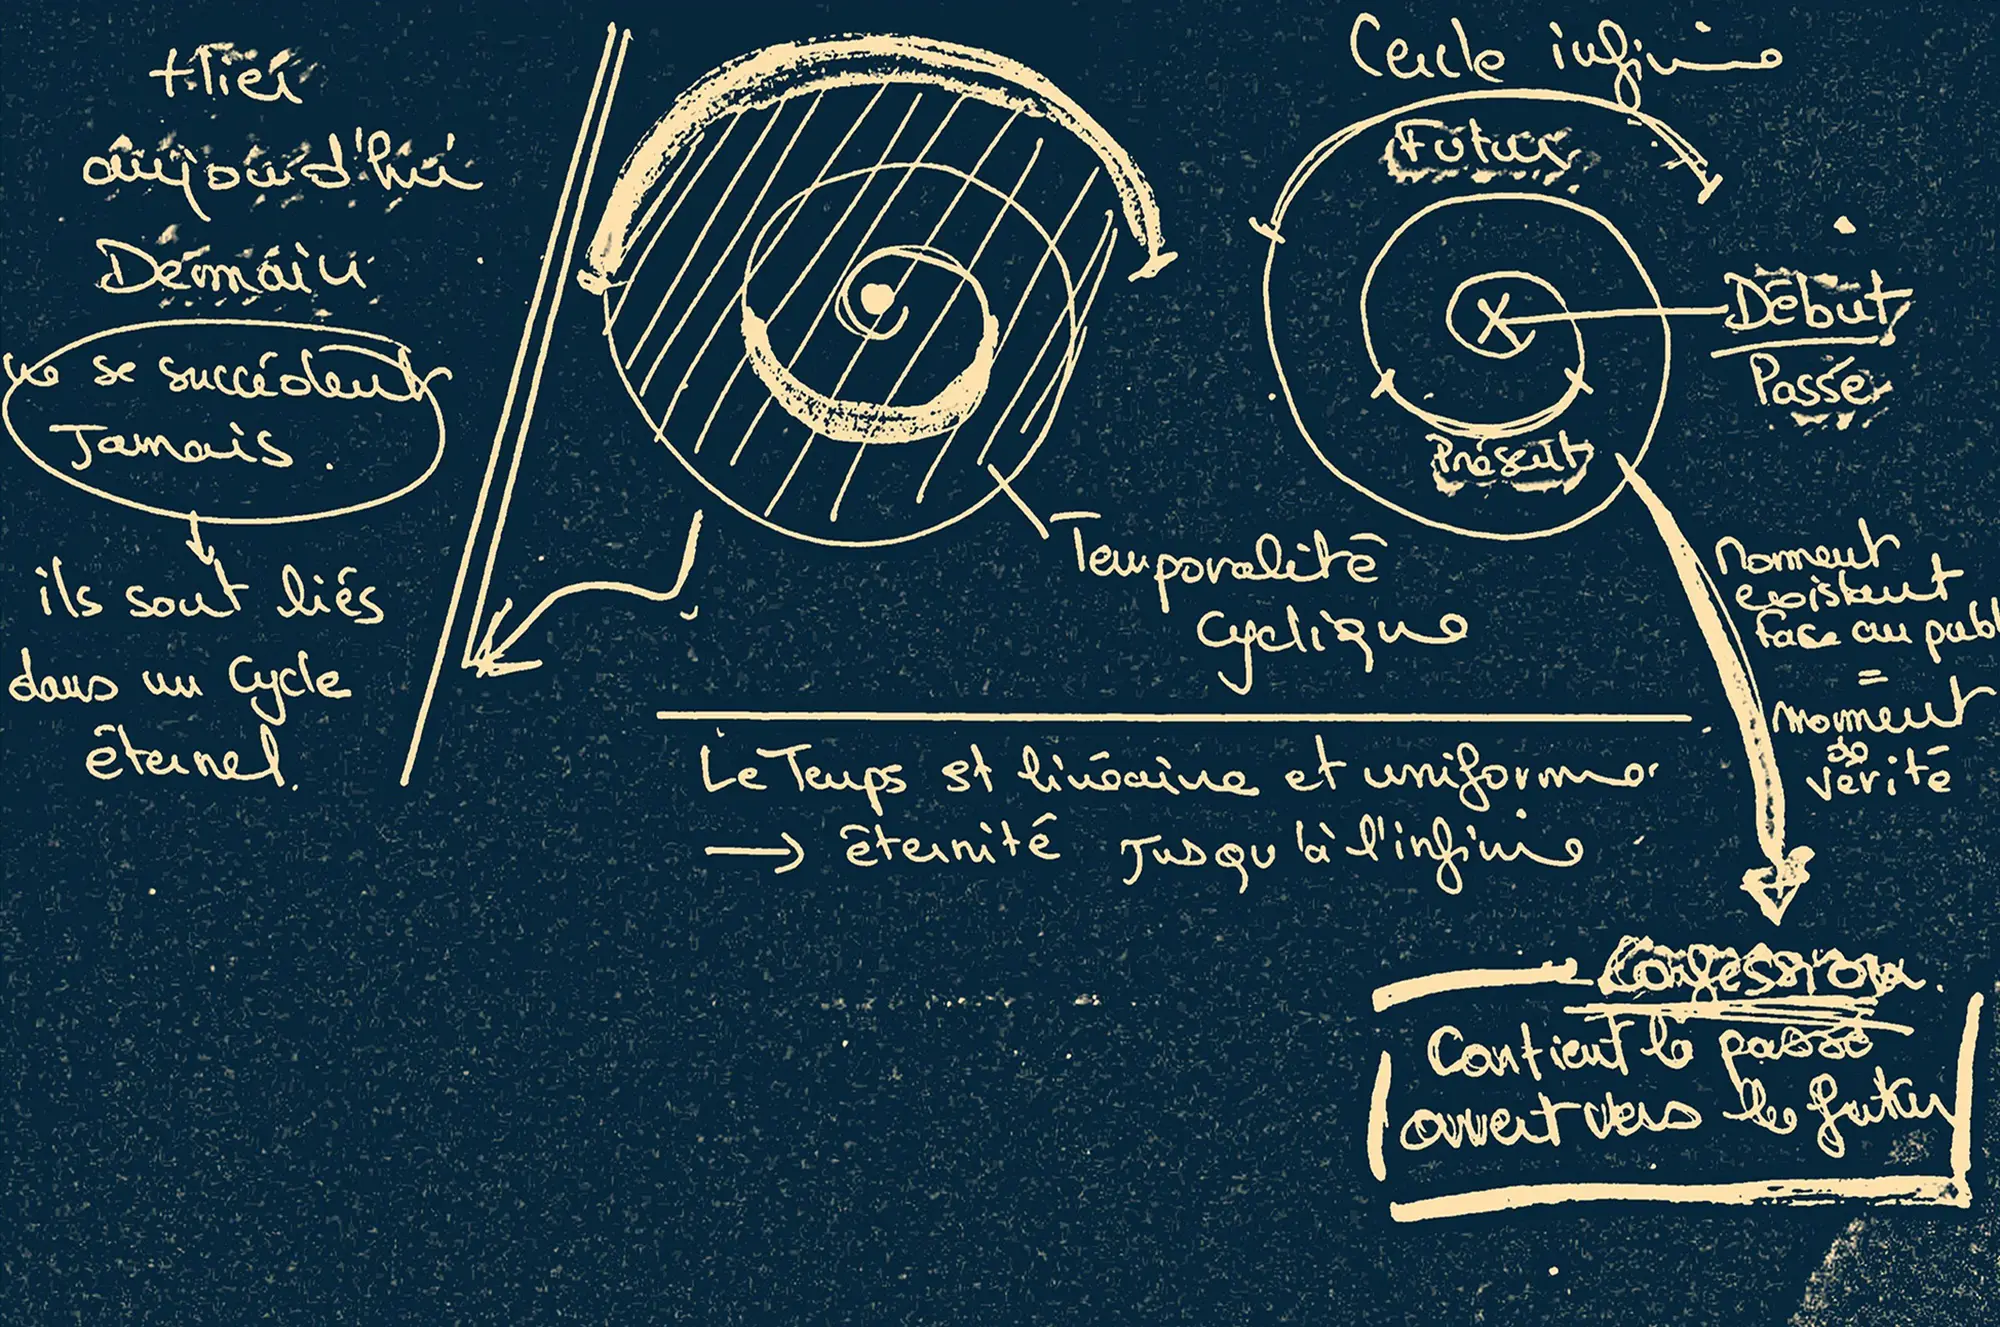 Hier
aujourd'hui
Demain
ne se succédent
Jamais.
ils sont liés
dans un Cycle
éternel.
Temporalité
Cyclique
Cercle infinie
Futur
Début
Passé
Présent
Moment
existent
face au publ
=
moment
de
vérité
Le Temps st linéaire et uniforme
→ éternité Jusqu'à l'infinie
Confession.
Contient le passé
ouvert vers le futur